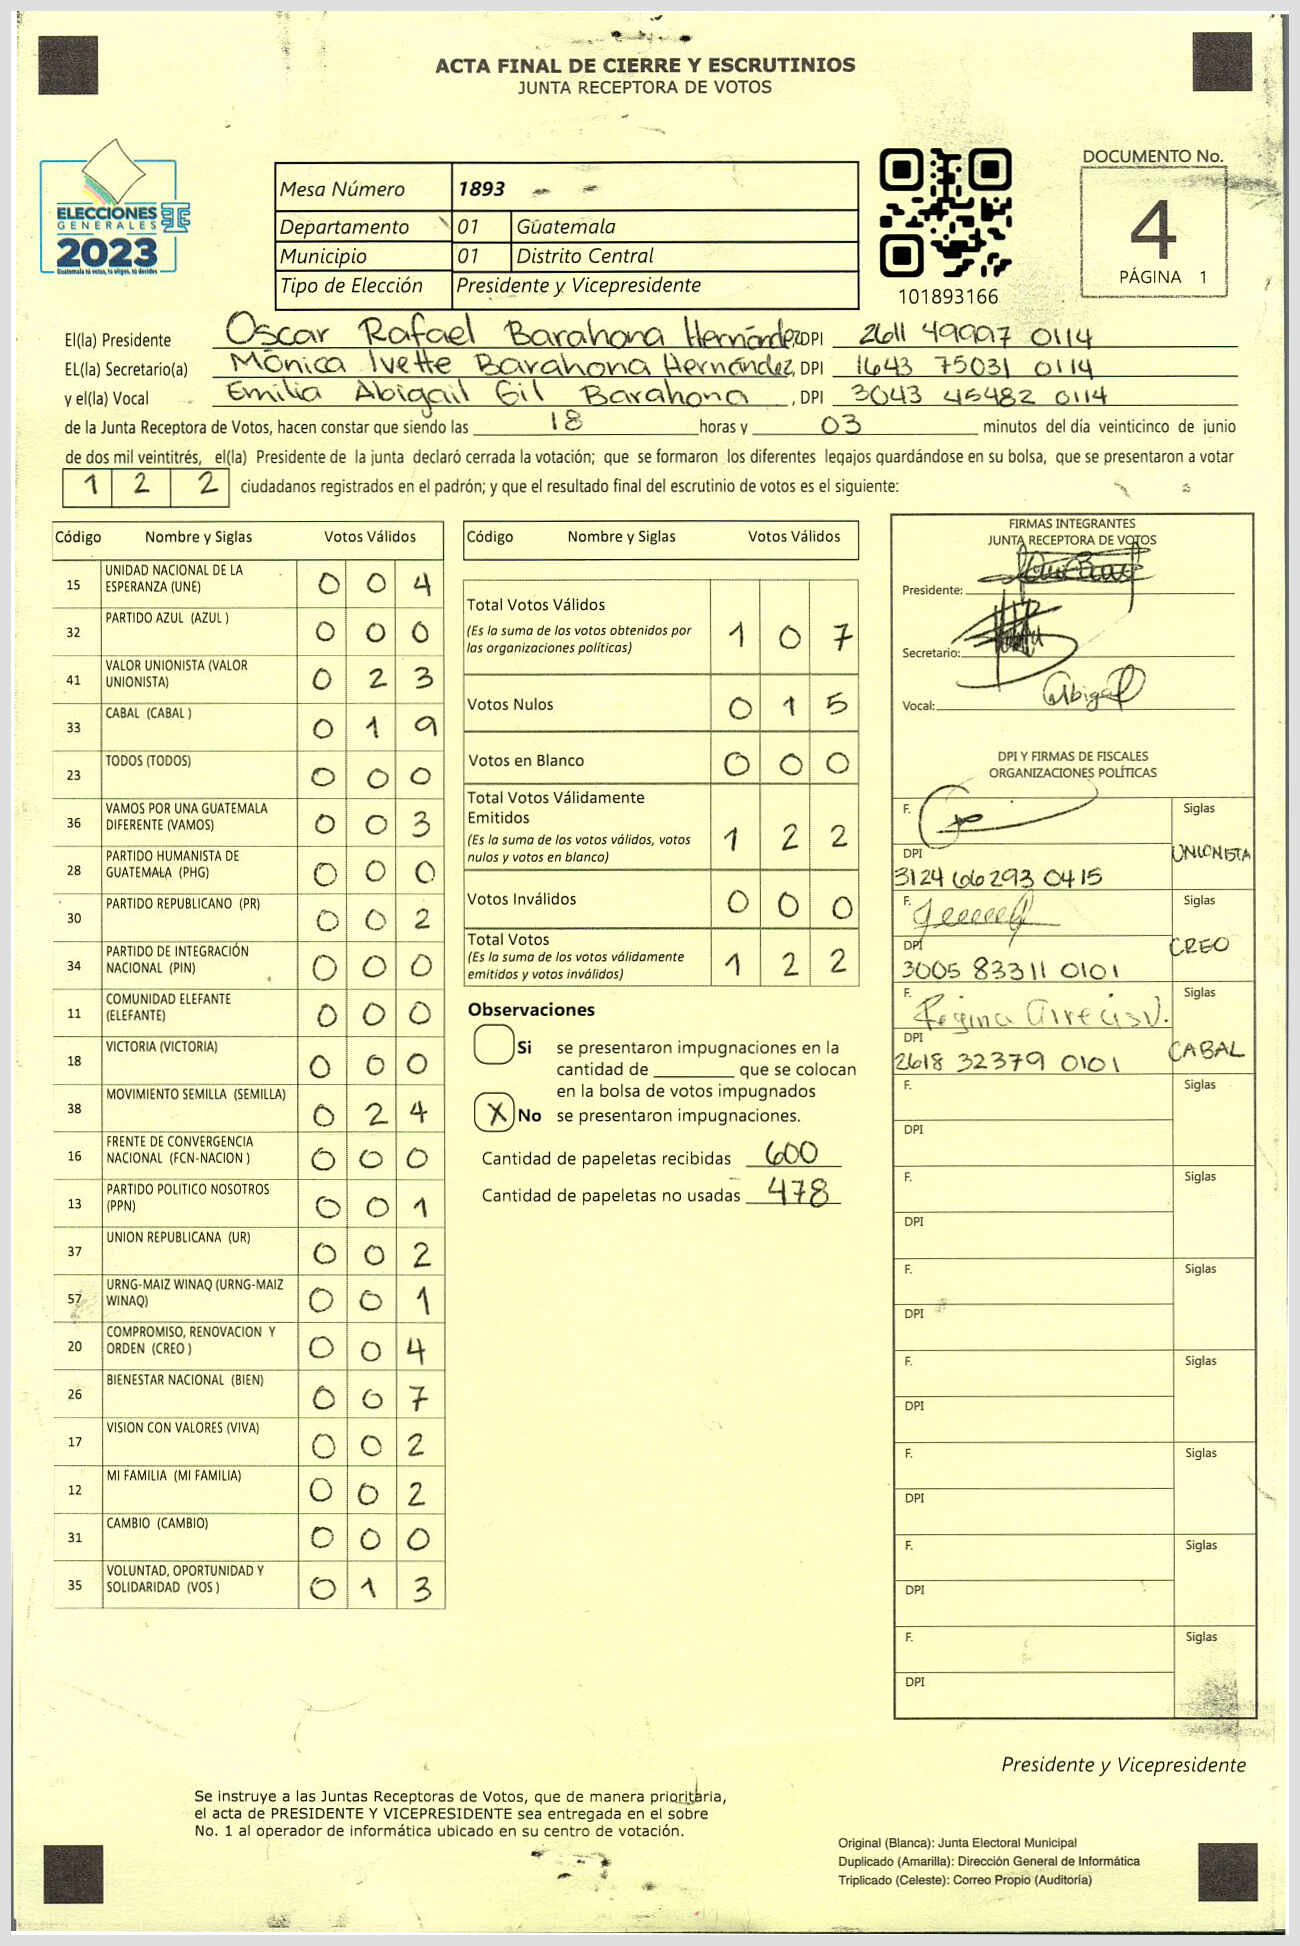 ACTA FINAL DE CIERRE Y ESCRUTINIOS
JUNTA RECEPTORA DE VOTOS
ELECCIONES
GENERALES
2023
Guatemala tú votas, tú eliges, tú decides
Mesa Número 1893
Departamento 01 Guatemala
Municipio 01 Distrito Central
Tipo de Elección Presidente y Vicepresidente
101893166
DOCUMENTO No.
4
PÁGINA 1
El(la) Presidente Oscar Rafael Barahona Hernández DPI 2611 49997 0114
EL(la) Secretario(a) Mónica Ivette Barahona Hernández, DPI 1643 75031 0114
y el(la) Vocal Emilia Abigail Gil Barahona, DPI 3043 45482 0114
de la Junta Receptora de Votos, hacen constar que siendo las 18 horas y 03 minutos del día veinticinco de junio
de dos mil veintitrés, el(la) Presidente de la junta declaró cerrada la votación; que se formaron los diferentes legajos guardándose en su bolsa, que se presentaron a votar
1 2 2 ciudadanos registrados en el padrón; y que el resultado final del escrutinio de votos es el siguiente:
Código Nombre y Siglas Votos Válidos
15 UNIDAD NACIONAL DE LA
ESPERANZA (UNE) 0 0 4
32 PARTIDO AZUL (AZUL ) 0 0 0
41 VALOR UNIONISTA (VALOR
UNIONISTA) 0 2 3
33 CABAL (CABAL ) 0 1 9
23 TODOS (TODOS) 0 0 0
36 VAMOS POR UNA GUATEMALA
DIFERENTE (VAMOS) 0 0 3
28 PARTIDO HUMANISTA DE
GUATEMALA (PHG) 0 0 0
30 PARTIDO REPUBLICANO (PR) 0 0 2
34 PARTIDO DE INTEGRACIÓN
NACIONAL (PIN) 0 0 0
11 COMUNIDAD ELEFANTE
(ELEFANTE) 0 0 0
18 VICTORIA (VICTORIA) 0 0 0
38 MOVIMIENTO SEMILLA (SEMILLA) 0 2 4
16 FRENTE DE CONVERGENCIA
NACIONAL (FCN-NACION ) 0 0 0
13 PARTIDO POLITICO NOSOTROS
(PPN) 0 0 1
37 UNION REPUBLICANA (UR) 0 0 2
57 URNG-MAIZ WINAQ (URNG-MAIZ
WINAQ) 0 0 1
20 COMPROMISO, RENOVACION Y
ORDEN (CREO ) 0 0 4
26 BIENESTAR NACIONAL (BIEN) 0 0 7
17 VISION CON VALORES (VIVA) 0 0 2
12 MI FAMILIA (MI FAMILIA) 0 0 2
31 CAMBIO (CAMBIO) 0 0 0
35 VOLUNTAD, OPORTUNIDAD Y
SOLIDARIDAD (VOS ) 0 1 3
Código Nombre y Siglas Votos Válidos
Total Votos Válidos
(Es la suma de los votos obtenidos por
las organizaciones políticas) 1 0 7
Votos Nulos 0 1 5
Votos en Blanco 0 0 0
Total Votos Válidamente
Emitidos
(Es la suma de los votos válidos, votos
nulos y votos en blanco) 1 2 2
Votos Inválidos 0 0 0
Total Votos
(Es la suma de los votos válidamente
emitidos y votos inválidos) 1 2 2
Observaciones
Si se presentaron impugnaciones en la
cantidad de ________ que se colocan
en la bolsa de votos impugnados
X No se presentaron impugnaciones.
Cantidad de papeletas recibidas 600
Cantidad de papeletas no usadas 478
FIRMAS INTEGRANTES
JUNTA RECEPTORA DE VOTOS
Presidente:
Secretario:
Vocal: Abigail
DPI Y FIRMAS DE FISCALES
ORGANIZACIONES POLÍTICAS
F. Siglas
UNIONISTA
DPI
3124 66293 0415
F. Siglas
CREO
DPI
3005 83311 0101
F. Regina Siglas
CABAL
DPI
2618 32379 0101
F. Siglas
DPI
F. Siglas
DPI
F. Siglas
DPI
F. Siglas
DPI
F. Siglas
DPI
F. Siglas
DPI
F. Siglas
DPI
Presidente y Vicepresidente
Se instruye a las Juntas Receptoras de Votos, que de manera prioritaria,
el acta de PRESIDENTE Y VICEPRESIDENTE sea entregada en el sobre
No. 1 al operador de informática ubicado en su centro de votación.
Original (Blanca): Junta Electoral Municipal
Duplicado (Amarilla): Dirección General de Informática
Triplicado (Celeste): Correo Propio (Auditoría)